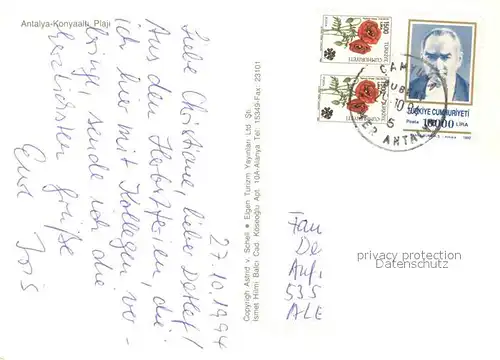 Antalya-Konyaaltı Plajı
27.10.1994
Liebe Christiane, lieber Detlef!
Aus den Herbstferien, die
ich hier mit Kollegen ver-
bringe, sende ich die
herzlichsten Grüße
Eure Iris
Copyright Astrid v. Schell ● Eigen Turizm Yayınları Ltd Şti.
Ismet Hilmi Balcı Cad. Köseoğlu Apt. 10A-Alanya Tel: 15349-Fax: 23101
1500
TÜRKİYE
CUMHURİYETİ
TÜRKİYE
CUMHURİYETİ
TÜRKİYE CUMHURİYETİ
Posta
LİRA
ANTALYA
5
Fam
De
Auf
535
ALE
privacy protection
Datenschutz